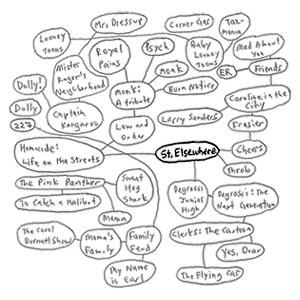 Mrs. Doubtfire
Corner Gas
Taz-
mania
Looney
Toons
Royal
Pains
Psych
Baby
Looney
Toons
Mad About
You
Mister
Roger's
Neighborhood
Monk
ER
Friends
Dolly!
Monk:
A tribute
Burn Notice
Caroline in the
City
Dolly
Captain
Kangaroo
Larry Sanders
Frasier
227
Law and
Order
Homicide:
Life on the Streets
St. Elsewhere
Cheers
Throb
The Pink Panther
Sweat
Hog
Shark
Degrassi
Junior
High
Degrassi: The
Next Generation
To Catch a Halibut
Mama
Clerks: The Cartoon
The Carol
Burnett Show
Mama's
Family
Family
Feud
Yes, Dear
My Name
is Earl
The Flying Car